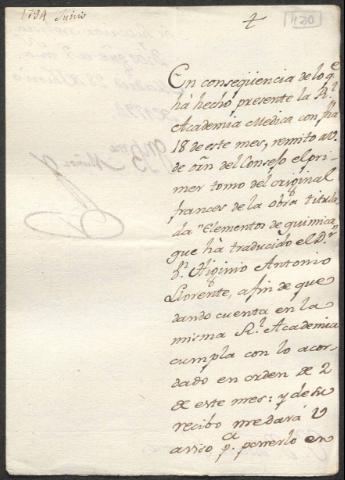 1794 Junio
120
En conseqüencia de lo q.e
há hecho presente la R.l
Academia Medica con fha
18 de este mes, remito a V.
de orn del Consejo el pri-
mer tomo del original
frances de la obra titula
da "Elementos de quimica"
que há traducido el D.r
D.n Higinio Antonio
Llorente, a fin de que
dando cuenta en la
misma R.l Academia
cumpla con lo acor-
dado en orden de 2
de este mes: y de su
recibo me dará V
aviso p.a ponerlo en